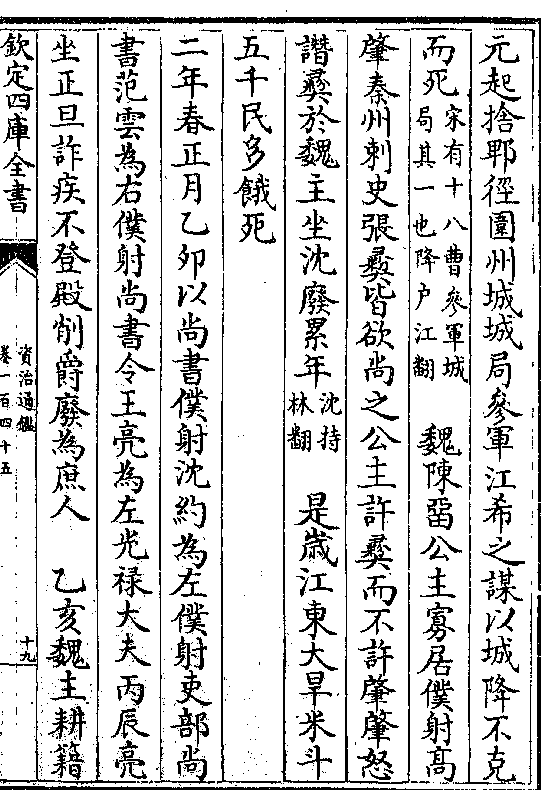 元起捨郫徑圍州城城局參軍江希之謀以城降不克
而死宋有十八曹參軍城局其一也降户江翻　魏陳留公主寡居僕射高
肇秦州刺史張彞皆欲尚之公主許彞而不許肇肇怒
譖彞於魏主坐沈廢累年沈持林翻　是歲江東大旱米斗
五千民多餓死
二年春正月乙卯以尚書僕射沈約為左僕射吏部尚
書范雲為右僕射尚書令王亮為左光禄大夫丙辰亮
坐正旦詐疾不登殿削爵廢為庶人　乙亥魏主耕籍
欽定四庫全書
資治通鑑
卷一百四十五
十九